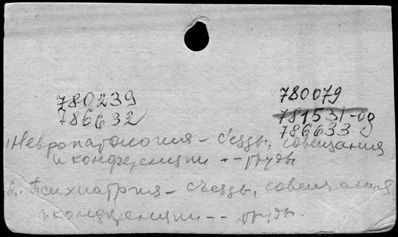 780239 780079
786632 781531-оо
786633
1) Невропатология - съезды, совещания
и конференции - - труды
2. Психиатрия - съезды, совещания
и конференции - - труды.